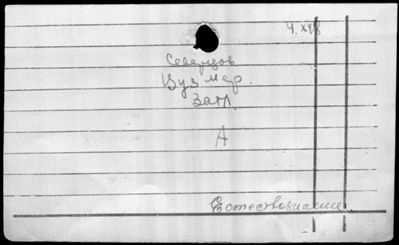 Ч. XVIII
Северцов
Вуз мер.
Загл.
А
Естествознание